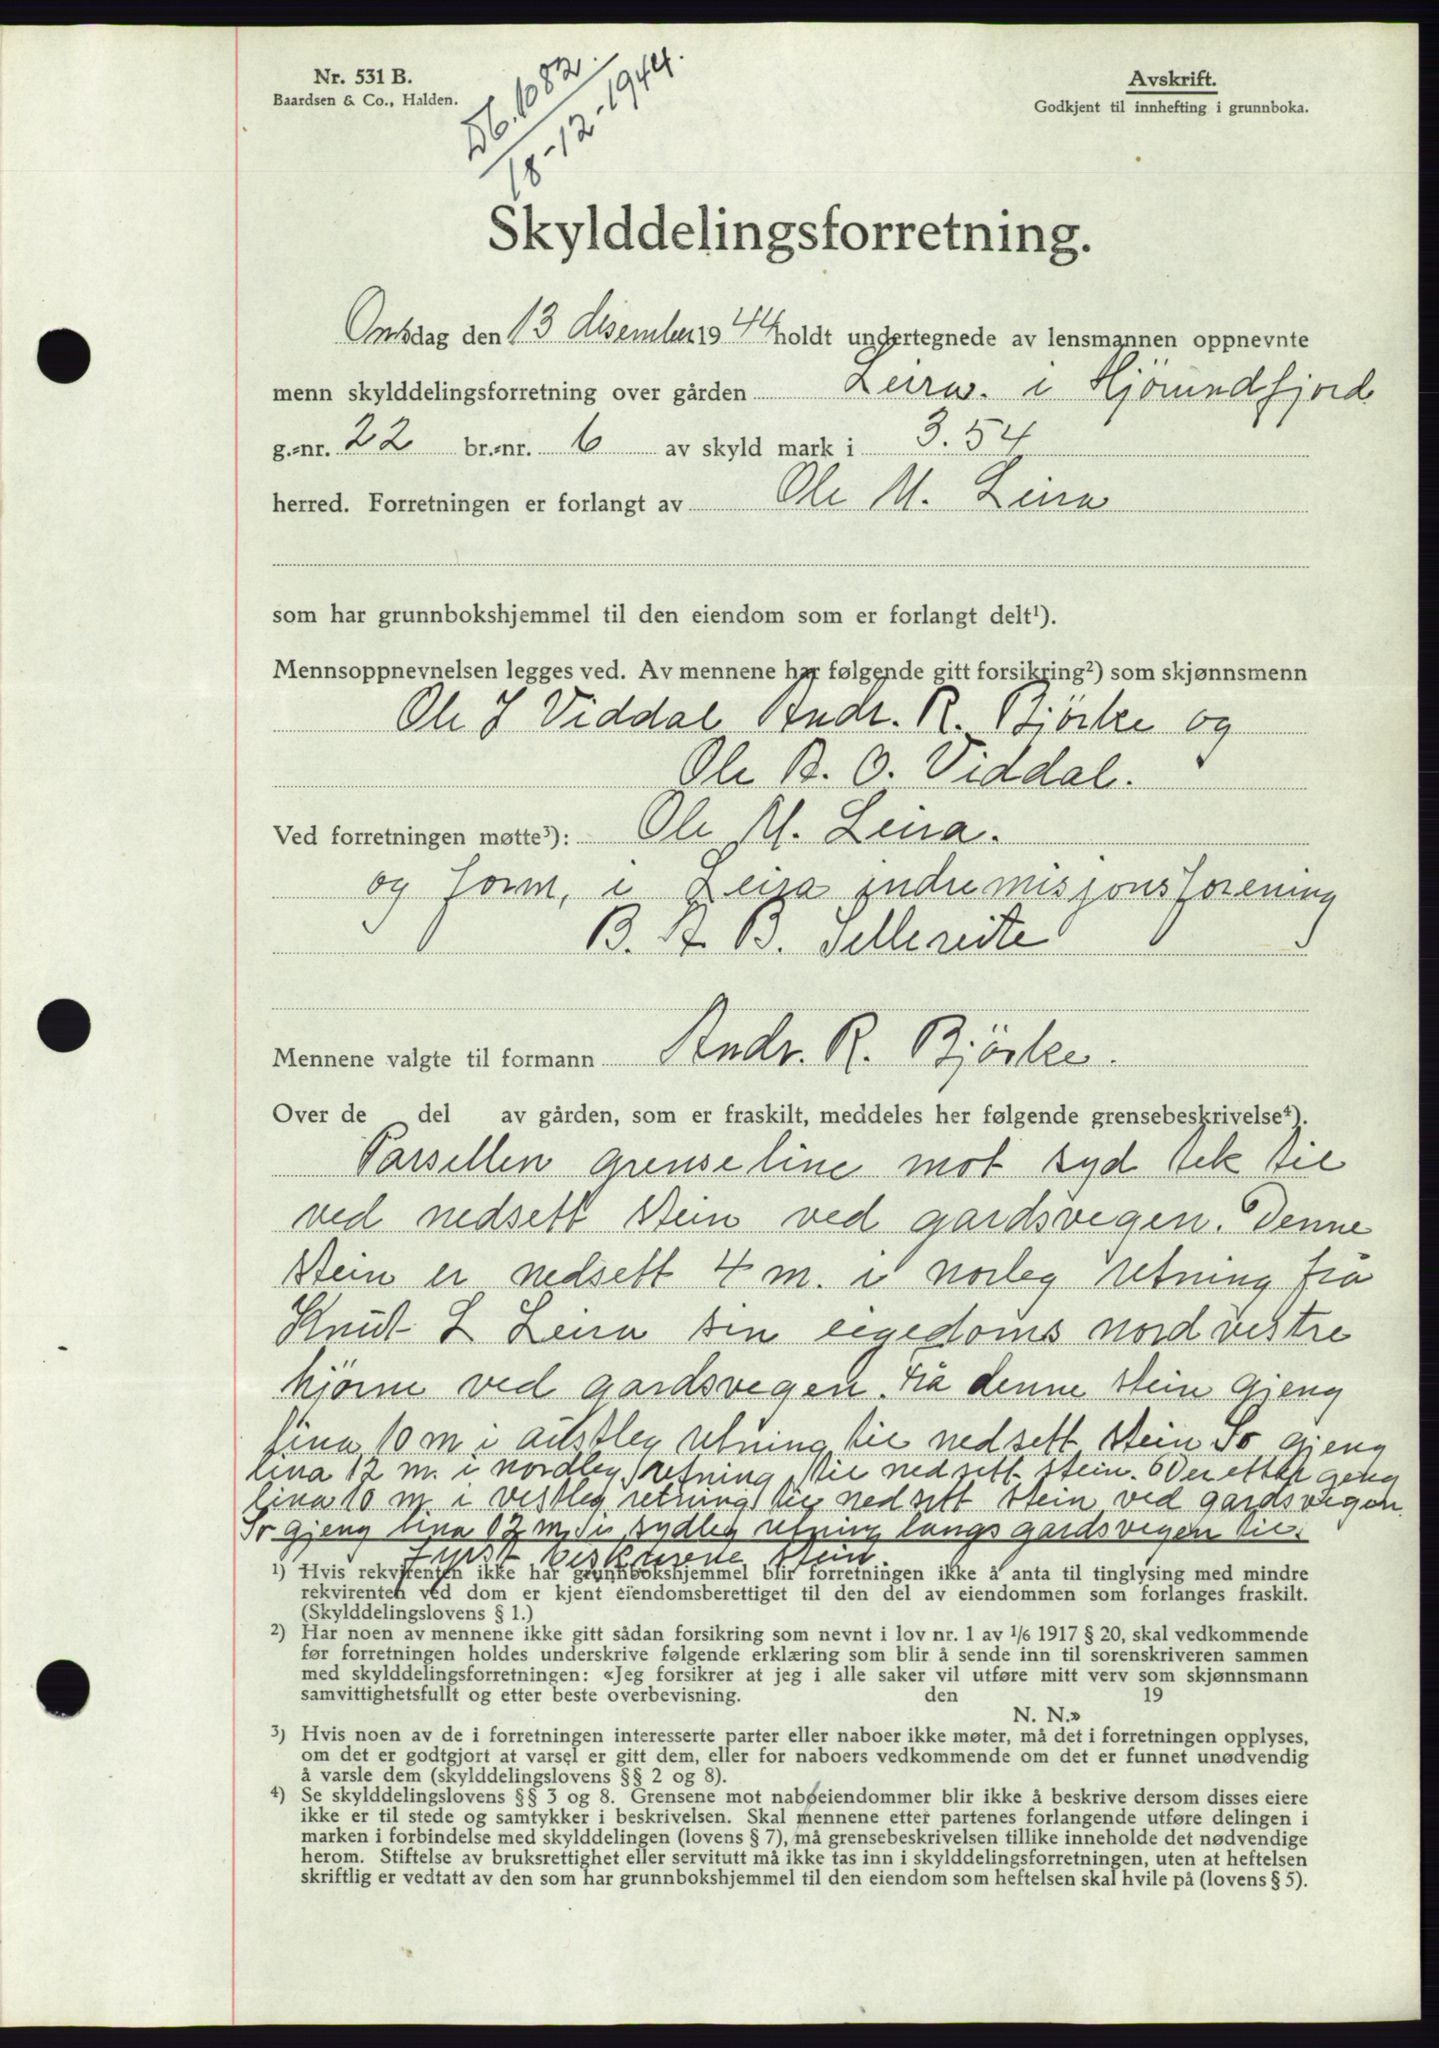 Nr. 531 B.
Baardsen & Co., Halden.
Db. 1082.
18-12-1944.
Avskrift.
Godkjent til innhefting i grunnboka.
Skylddelingsforretning.
Onsdag den 13 desember 1944 holdt undertegnede av lensmannen oppnevnte
menn skylddelingsforretning over gården Leira. i Hjörundfjord
g.-nr. 22 br.-nr. 6 av skyld mark i 3.54
herred. Forretningen er forlangt av Ole M. Leira
som har grunnbokshjemmel til den eiendom som er forlangt delt¹).
Mennsoppnevnelsen legges ved. Av mennene har følgende gitt forsikring²) som skjønnsmenn
Ole J Viddal Andr. R. Björke og
Ole A. O. Viddal.
Ved forretningen møtte³): Ole M. Leira.
og form, i Leira indremisjonsforening
B. A. B. Sellereite
Mennene valgte til formann Andr. R. Björke.
Over de del av gården, som er fraskilt, meddeles her følgende grensebeskrivelse⁴).
Parsellen grenseline mot syd tek til
ved nedsett stein ved gardsvegen. Denne
stein er nedsett 4 m. i norleg retning frå
Knut L Leira sin eigedoms nordvestre
hjörne ved gardsvegen. Frå denne stein gjeng
lina 10 m i austleg retning til nedsett stein So gjeng
lina 12 m. i nordleg retning til nedsett stein. Deretter geng
lina 10 m i vestleg retning til nedsett stein ved gardsvegen.
So gjeng lina 12 m. i sydleg retning langs gardsvegen til
fyrst beskrevne stein.
¹) Hvis rekvirenten ikke har grunnbokshjemmel blir forretningen ikke å anta til tinglysing med mindre
rekvirenten ved dom er kjent eiendomsberettiget til den del av eiendommen som forlanges fraskilt.
(Skylddelingslovens § 1.)
²) Har noen av mennene ikke gitt sådan forsikring som nevnt i lov nr. 1 av 1/6 1917 § 20, skal vedkommende
før forretningen holdes underskrive følgende erklæring som blir å sende inn til sorenskriveren sammen
med skylddelingsforretningen: «Jeg forsikrer at jeg i alle saker vil utføre mitt verv som skjønnsmann
samvittighetsfullt og etter beste overbevisning. den 19
N. N.»
³) Hvis noen av de i forretningen interesserte parter eller naboer ikke møter, må det i forretningen opplyses,
om det er godtgjort at varsel er gitt dem, eller for naboers vedkommende om det er funnet unødvendig
å varsle dem (skylddelingslovens §§ 2 og 8).
⁴) Se skylddelingslovens §§ 3 og 8. Grensene mot naboeiendommer blir ikke å beskrive dersom disses eiere
ikke er til stede og samtykker i beskrivelsen. Skal mennene etter partenes forlangende utføre delingen i
marken i forbindelse med skylddelingen (lovens § 7), må grensebeskrivelsen tillike inneholde det nødvendige
herom. Stiftelse av bruksrettighet eller servitutt må ikke tas inn i skylddelingsforretningen, uten at heftelsen
skriftlig er vedtatt av den som har grunnbokshjemmel til den eiendom som heftelsen skal hvile på (lovens § 5).